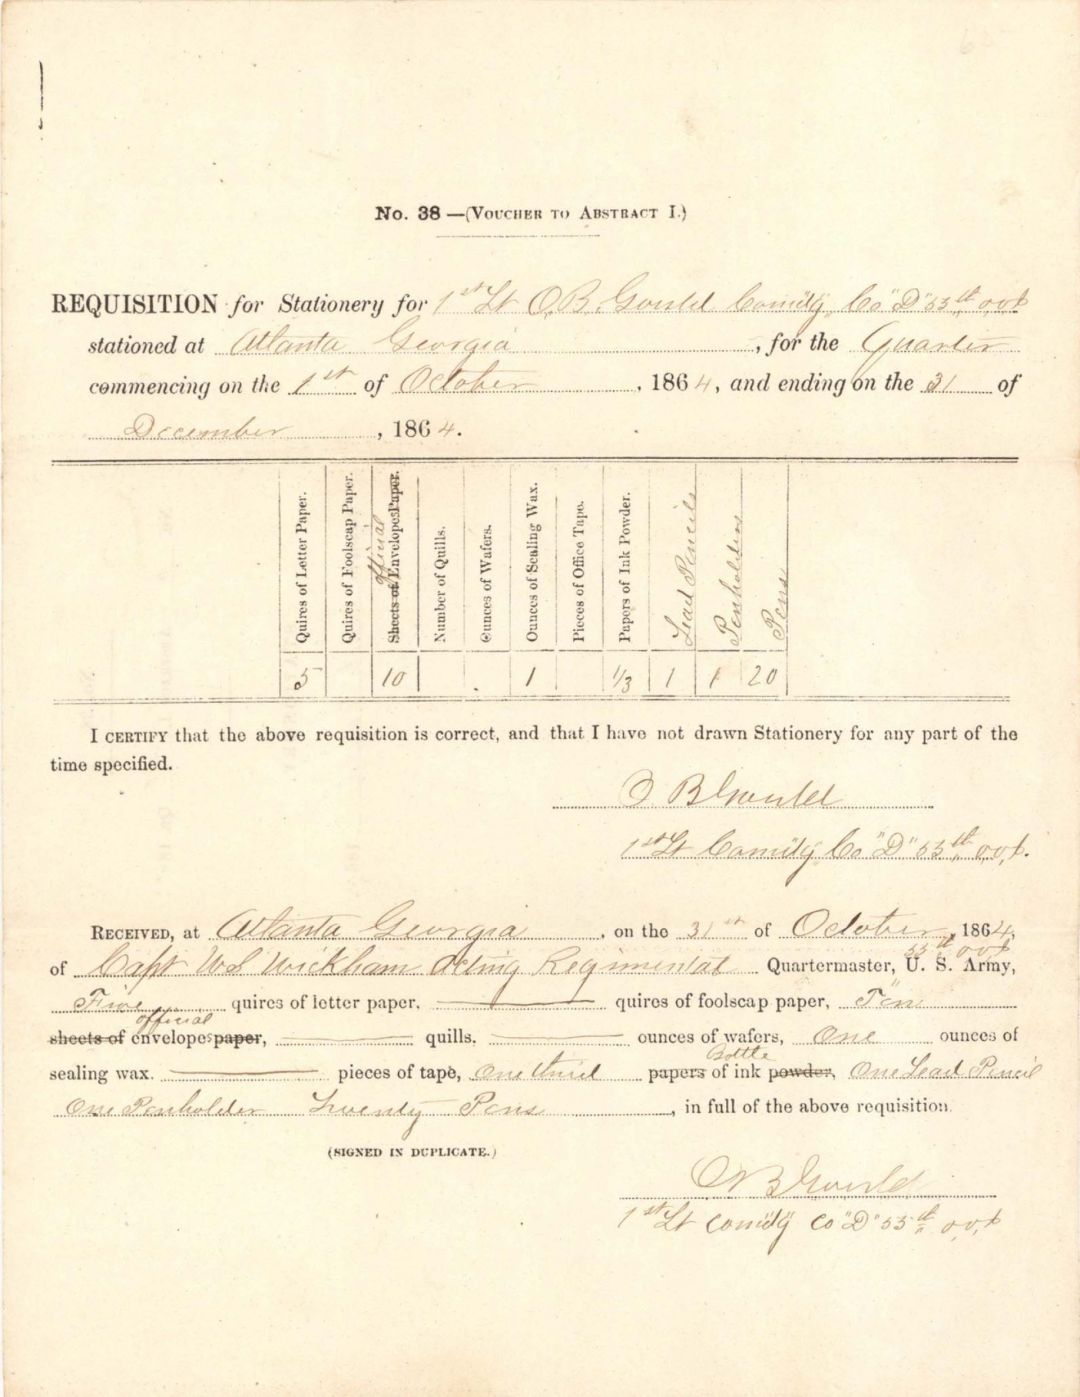 No. 38 —(Voucher to Abstract I.)
REQUISITION for Stationery for 1st Lt O.B. Gould Comd'g Co "D" 55th O.V.I.
stationed at Atlanta Georgia, for the Quarter
commencing on the 1st of October, 1864, and ending on the 31 of
December, 1864.
Quires of Letter Paper.
Quires of Foolscap Paper.
Sheets of official Envelopes Paper.
Number of Quills.
Ounces of Wafers.
Ounces of Sealing Wax.
Pieces of Office Tape.
Papers of Ink Powder.
Lead Pencils
Penholders
Pens
5 10 1 1/3 1 1 20
I CERTIFY that the above requisition is correct, and that I have not drawn Stationery for any part of the
time specified.
O B Gould
1st Lt Comd'g Co "D" 55th O.V.I.
RECEIVED, at Atlanta Georgia, on the 31st of October, 1864,
of Capt W S Wickham Acting Regimental Quartermaster, 55th O.V.I. U. S. Army,
Five quires of letter paper, quires of foolscap paper, Ten
sheets of official envelopes paper, quills, ounces of wafers, One ounces of
sealing wax. pieces of tape, One third papers Bottle of ink powder, One Lead Pencil
One Penholder Twenty Pens, in full of the above requisition.
(SIGNED IN DUPLICATE.)
O B Gould
1st Lt Comd'g Co "D" 55th O.V.I